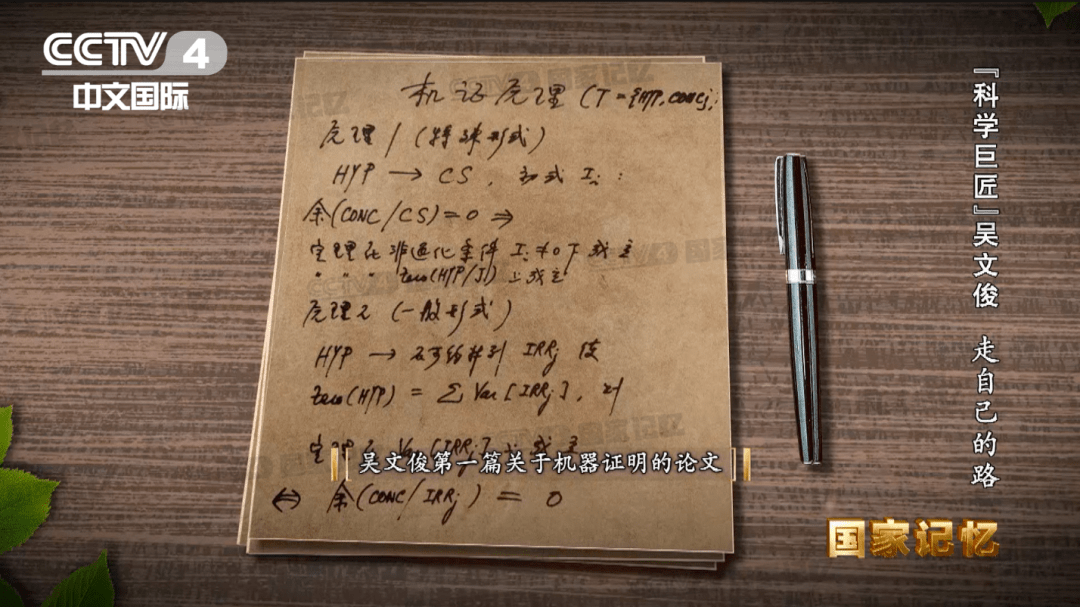 CCTV 4
中文国际
机证原理 (T = {HYP, CONC},
原理1 (特殊形式)
HYP → CS, 初式 Ii:
余(CONC/CS) = 0 ⇒
定理在非退化条件 Ii ≠ 0 下成立
" " " Zero(HYP/J) 上成立
原理2 (一般形式)
HYP → 不可约升列 IRRj 使
Zero(HYP) = Σ Var[IRRj], 则
定理在 Var[IRRj] 上成立
⇔ 余(CONC/IRRj) = 0
吴文俊第一篇关于机器证明的论文
『科学巨匠』吴文俊 走自己的路
国家记忆